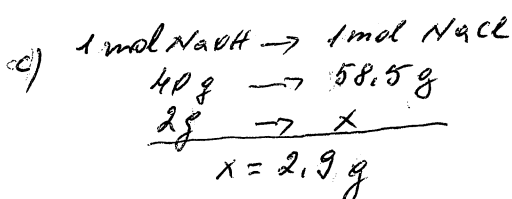 c) 1 mol NaOH → 1 mol NaCl
40 g → 58,5 g
2 g → x
x = 2,9 g